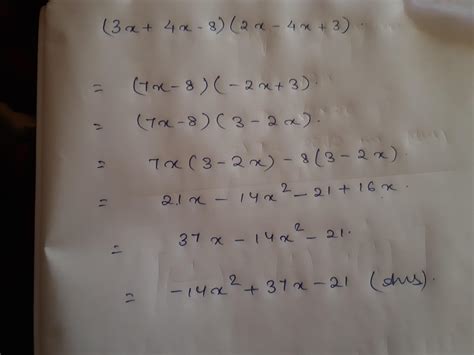 (3x + 4x - 8) (2x - 4x + 3).
= (7x - 8) (-2x + 3).
= (7x - 8) (3 - 2x).
= 7x (3 - 2x) - 8 (3 - 2x).
= 21x - 14x² - 21 + 16x.
= 37x - 14x² - 21.
= -14x² + 37x - 21 (Ans).